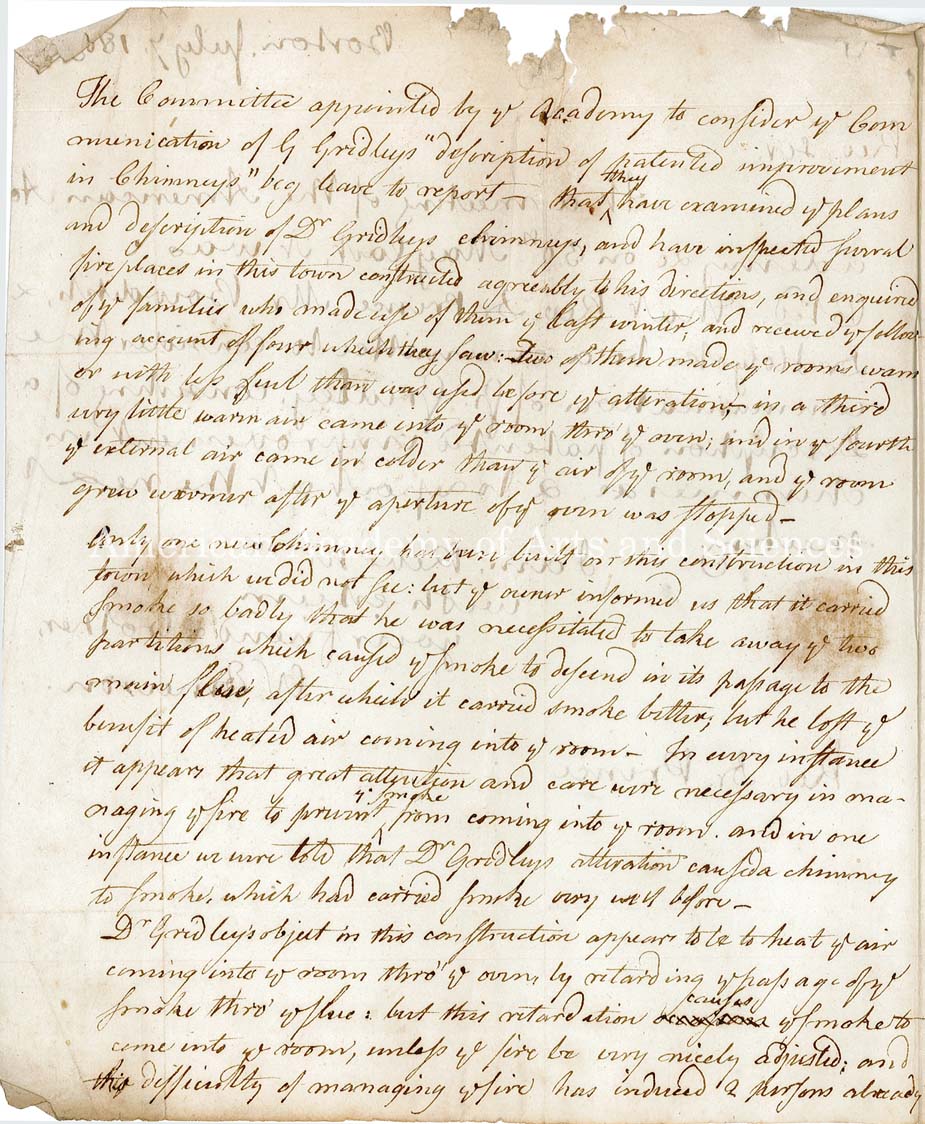 The Committee appointed by ye Academy to consider ye Com
munication of G Gridleys "description of patented improvement
in Chimneys" beg leave to report — that they have examined ye plans
and description of Dr Gridleys chimneys, and have inspected several
fireplaces in this town constructed agreeably to his directions, and enquired
of ye families who made use of them ye last winter, and received ye follow-
ing account of four which they saw: Two of them made ye rooms warm
er with less fuel than was used before ye alteration; in a third
very little warm air came into ye room thro' ye oven; and in ye fourth
ye external air came in colder than ye air of ye room, and ye room
grew warmer after ye aperture of ye oven was stopped —
Only one new Chimney has been built on this construction in this
town, which we did not see: but ye owner informed us that it carried
smoke so badly that he was necessitated to take away ye two
partitions which caused ye smoke to descend in its passage to the
main flue, after which it carried smoke better; but he lost ye
benefit of heated air coming into ye room — In every instance
it appears that great attention and care were necessary in ma-
naging ye fire to prevent ye smoke from coming into ye room. and in one
instance we were told that Dr Gridleys alteration caused a chimney
to smoke, which had carried smoke very well before —
Dr Gridleys object in this construction appears to be to heat ye air
coming into ye room thro' ye oven, by retarding ye passage of ye
smoke thro' ye flue: but this retardation causes ye smoke to
come into ye room, unless ye fire be very nicely adjusted; and
this difficulty of managing ye fire has induced 2 persons already
American Academy of Arts and Sciences
Boston July 7 180